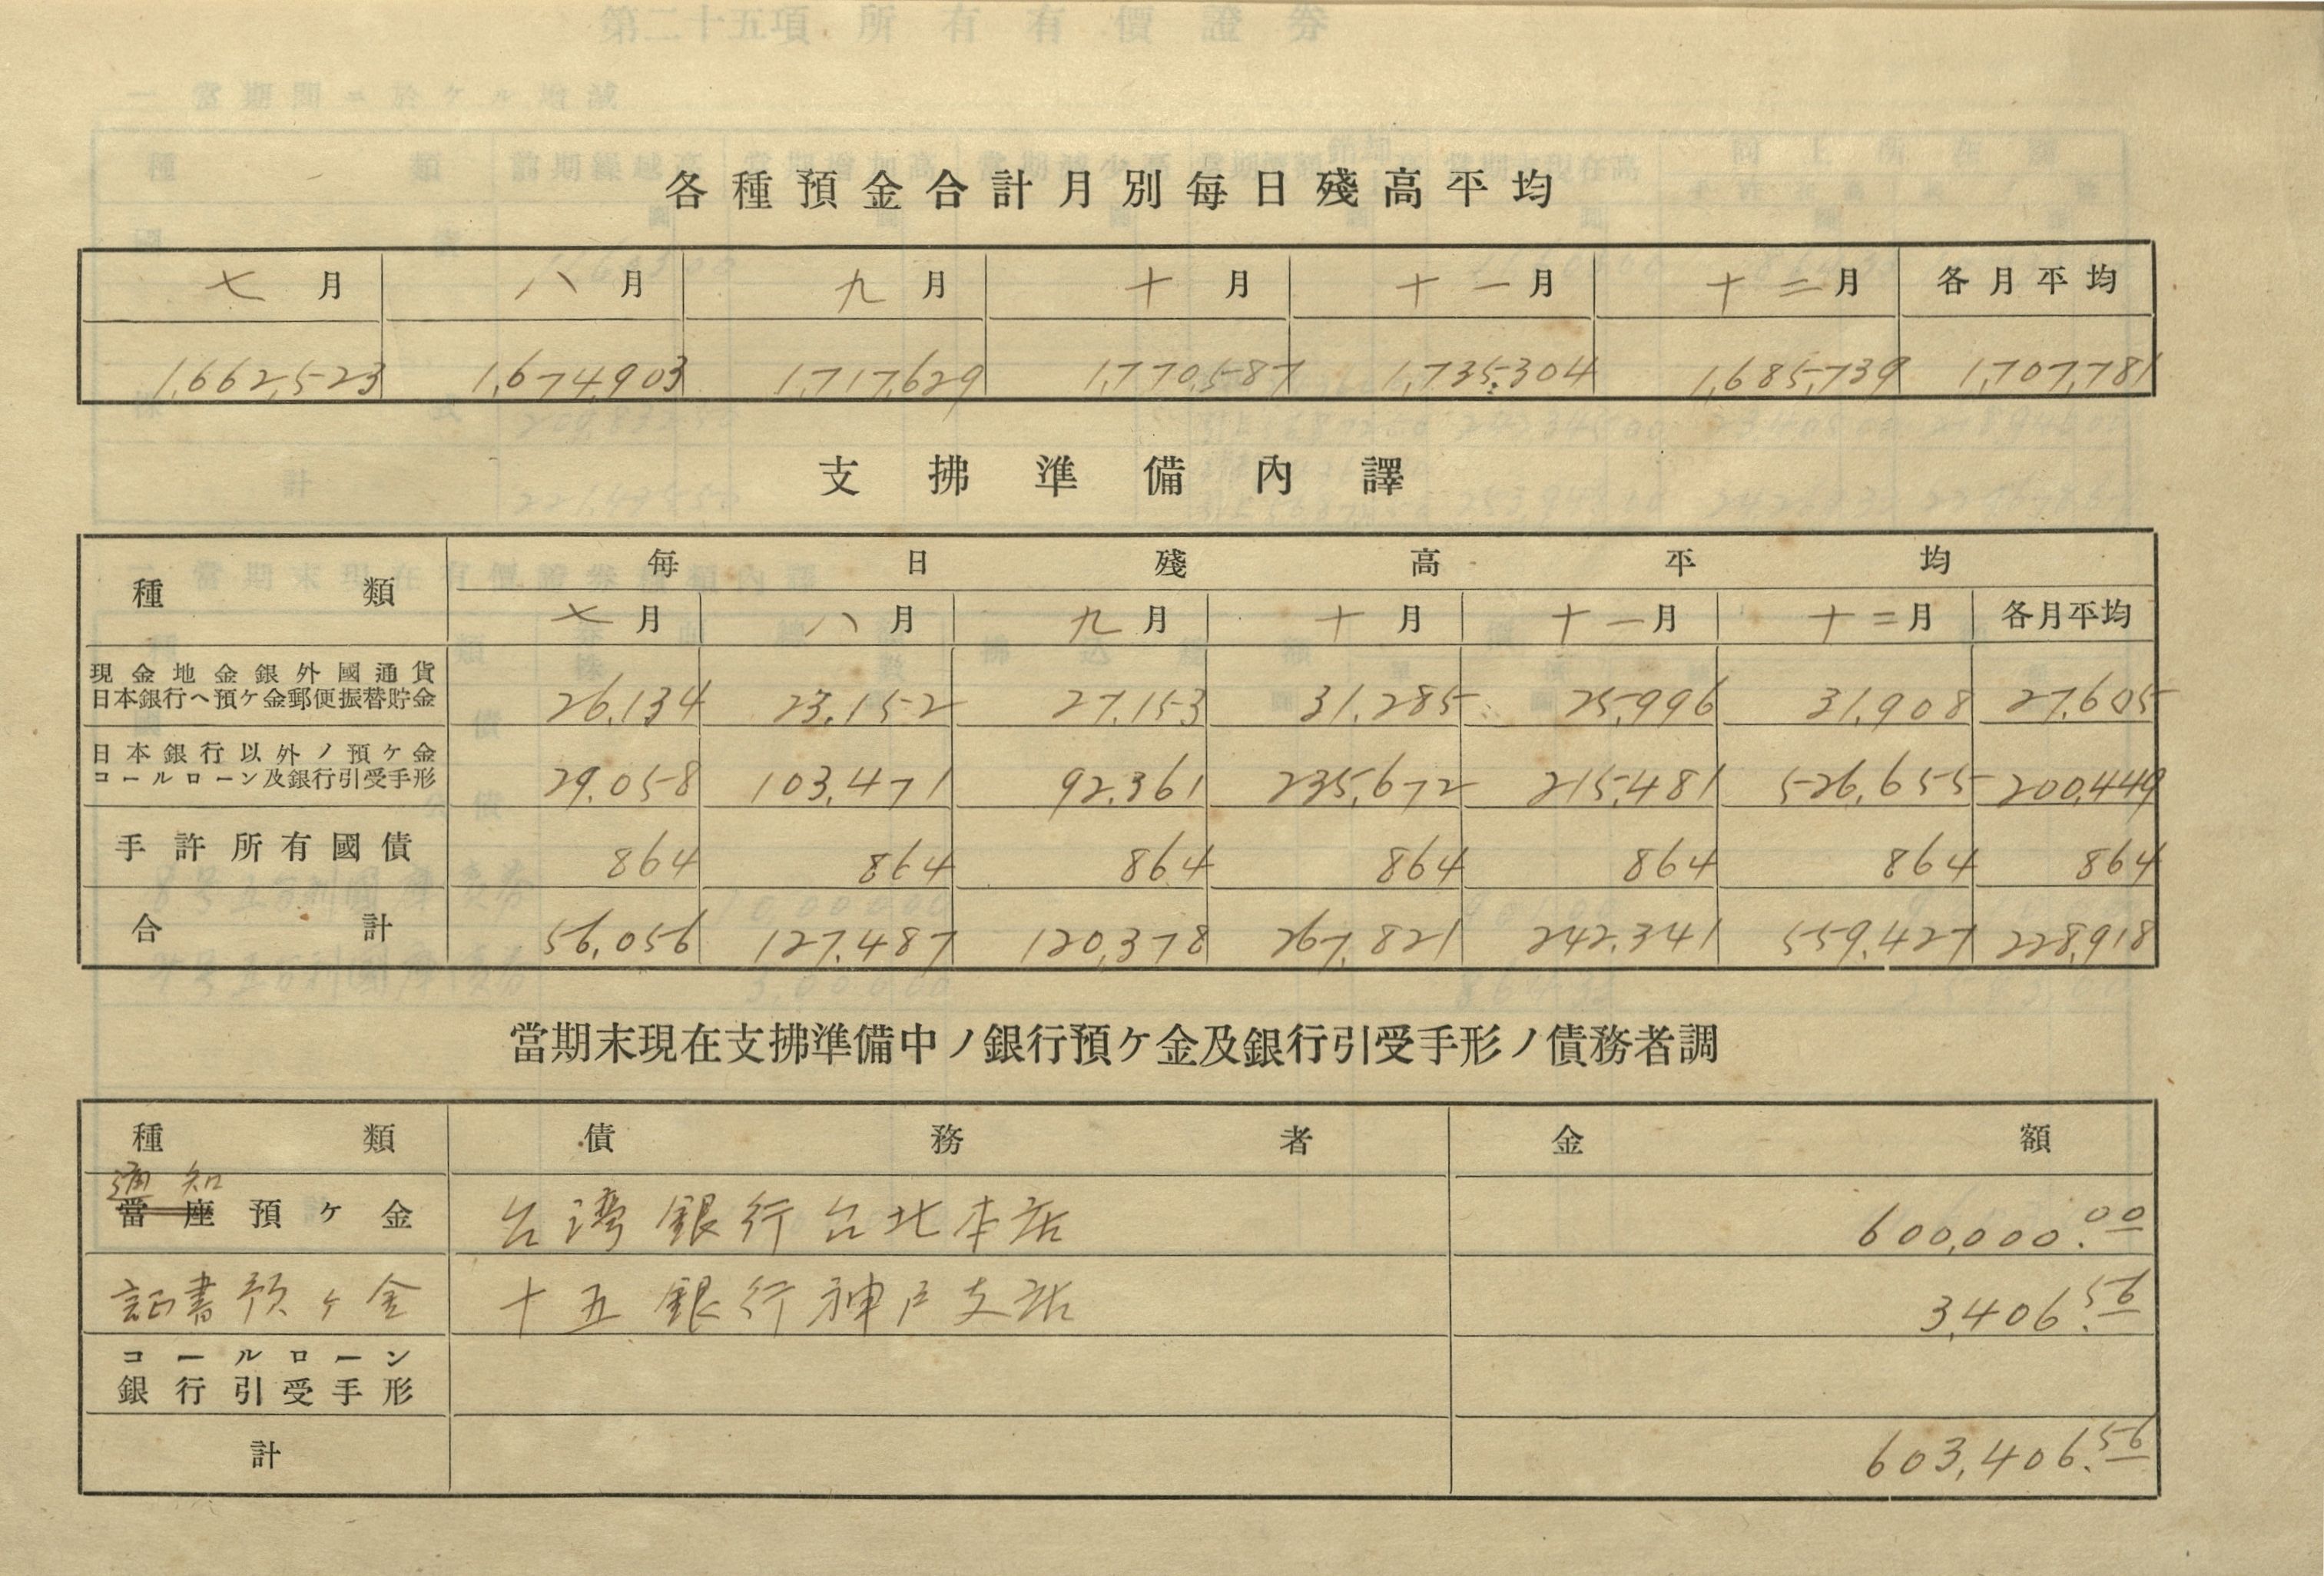 各種預金合計月別每日殘高平均
七月 八月 九月 十月 十一月 十二月 各月平均
1,662,523 1,674,903 1,717,629 1,770,587 1,735,304 1,685,739 1,707,781
支拂準備內譯
種類 每日殘高平均
七月 八月 九月 十月 十一月 十二月 各月平均
現金地金銀外國通貨
日本銀行へ預ケ金郵便振替貯金 26,134 23,152 27,153 31,285 25,996 31,908 27,605
日本銀行以外ノ預ケ金
コールローン及銀行引受手形 29,058 103,471 92,361 235,672 215,481 526,655 200,449
手許所有國債 864 864 864 864 864 864 864
合計 56,056 127,487 120,378 267,821 242,341 559,427 228,918
當期末現在支拂準備中ノ銀行預ケ金及銀行引受手形ノ債務者調
種類 債務者 金額
通知
當座預ケ金 台湾銀行台北本店 600,000.00
証書預ケ金 十五銀行神戶支店 3,406.56
コールローン
銀行引受手形
計 603,406.56